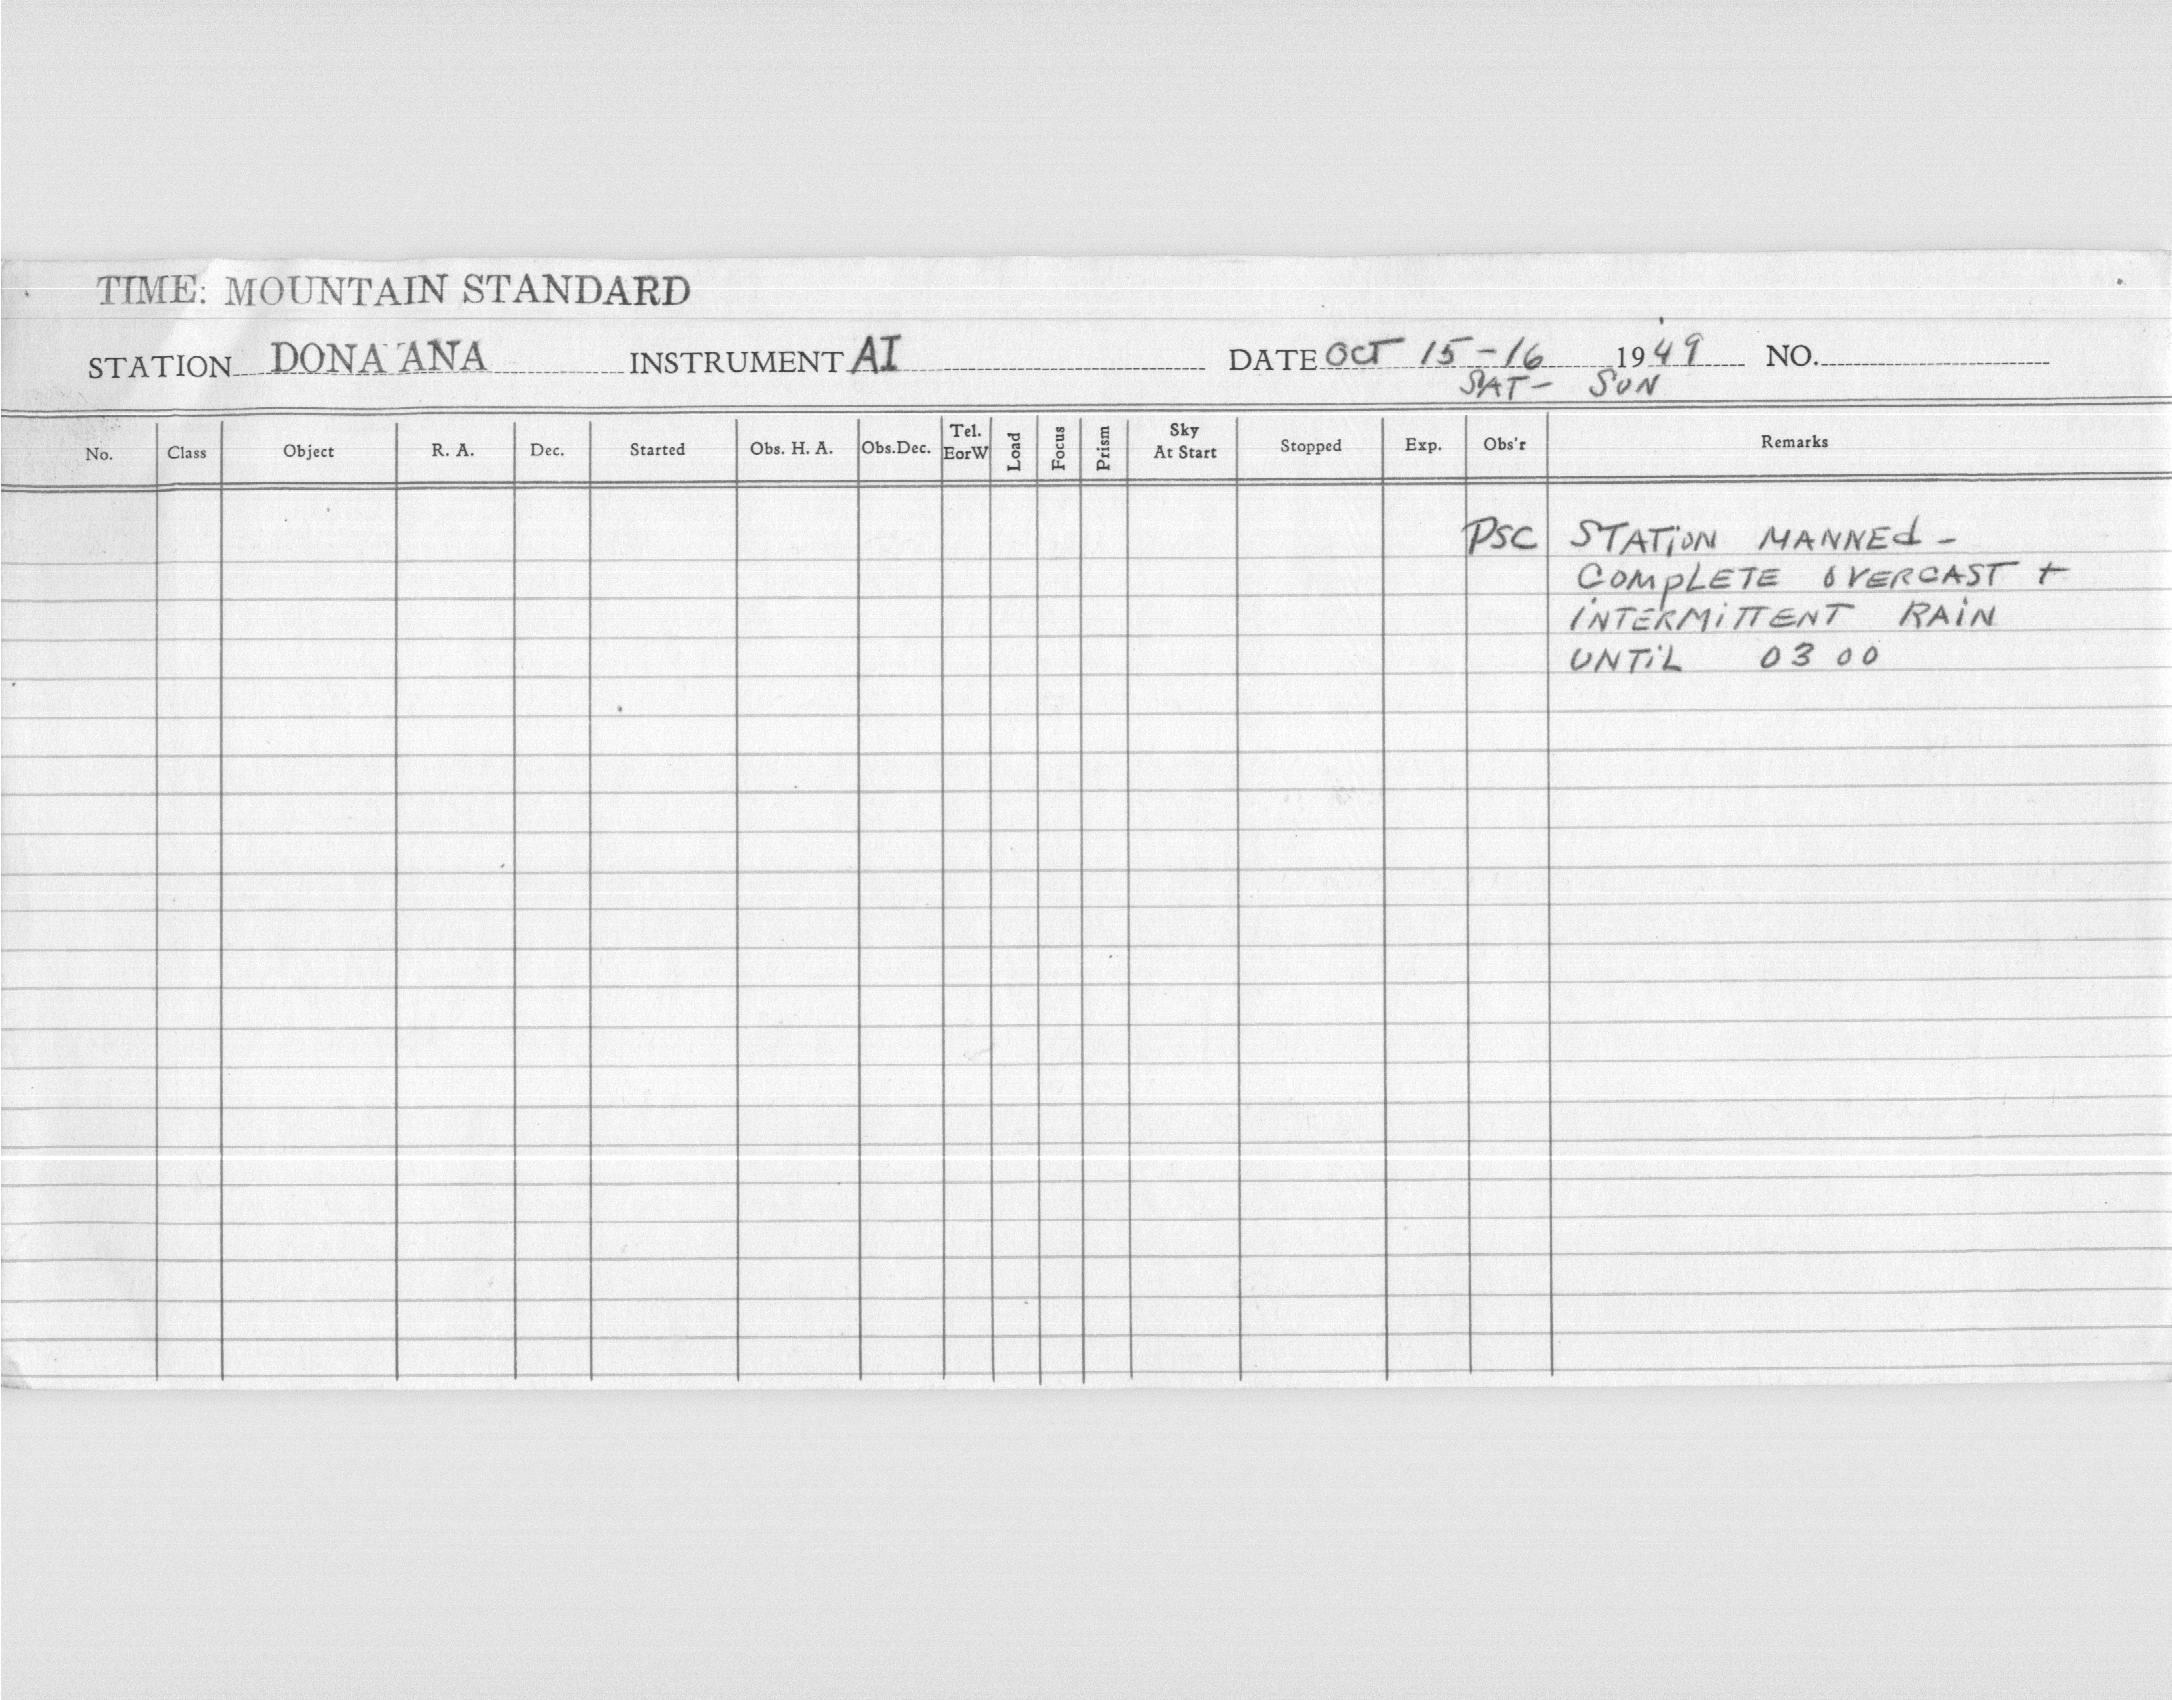 TIME: MOUNTAIN STANDARD
STATION DONA ANA INSTRUMENT AI DATE OCT 15-16 1949 NO.
SAT- SUN
No. Class Object R. A. Dec. Started Obs. H. A. Obs.Dec. Tel. EorW Load Focus Prism Sky At Start Stopped Exp. Obs'r Remarks
PSC STATiON MANNEd -
COMpLETE OVERCAST +
iNTERMiTTENT RAiN
UNTiL 03 00